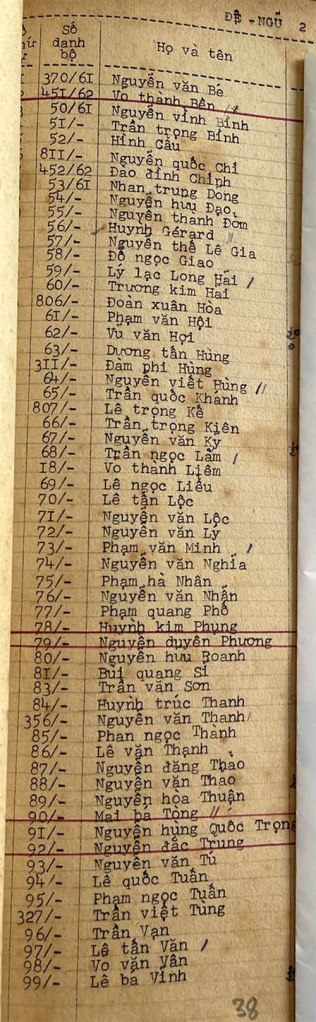 ĐỆ - NGŨ 2
Số
danh
bộ
Họ và tên
370/6I Nguyễn văn Bé
45I/62 Võ thành Bên
50/6I Nguyễn vĩnh Bình
5I/- Trần trọng Bình
52/- Hinh Cầu
8II/- Nguyễn quốc Chi
452/62 Đào đình Chinh
53/6I Nhan trung Dong
54/- Nguyễn hưu Đạo
55/- Nguyễn thanh Đởm
56/- Huynh Gérard
57/- Nguyễn thế Lê Gia
58/- Đỗ ngọc Giao
59/- Lý lạc Long Hải
60/- Trương kim Hai
806/- Đoàn xuân Hòa
6I/- Phạm văn Hội
62/- Vũ văn Hợi
63/- Dương tấn Hùng
3II/- Đàm phi Hùng
64/- Nguyễn viết Hùng
65/- Trần quốc Khanh
807/- Lê trọng Kế
66/- Trần trọng Kiên
67/- Nguyễn văn Kỳ
68/- Trần ngọc Lắm
I8/- Vo thanh Liêm
69/- Lê ngọc Liêu
70/- Lê tấn Lộc
7I/- Nguyễn văn Lộc
72/- Nguyễn văn Ly
73/- Phạm văn Minh
74/- Nguyễn văn Nghĩa
75/- Phạm hà Nhân
76/- Nguyễn văn Nhẫn
77/- Phạm quang Phổ
78/- Huỳnh kim Phụng
79/- Nguyễn duyên Phương
80/- Nguyễn hưu Roanh
8I/- Bùi quang Sỉ
83/- Trần văn Sơn
84/- Huỳnh trúc Thanh
356/- Nguyễn văn Thanh
85/- Phan ngọc Thành
86/- Lê văn Thạnh
87/- Nguyễn đăng Thảo
88/- Nguyễn văn Thao
89/- Nguyễn hòa Thuận
90/- Mai ba Tòng
9I/- Nguyễn hùng Quốc Trọng
92/- Nguyễn đắc Trung
93/- Nguyễn văn Tú
94/- Lê quốc Tuấn
95/- Phạm ngọc Tuấn
327/- Trần viết Tùng
96/- Trần Vạn
97/- Lê tấn Văn
98/- Vo văn Vân
99/- Lê ba Vinh
38